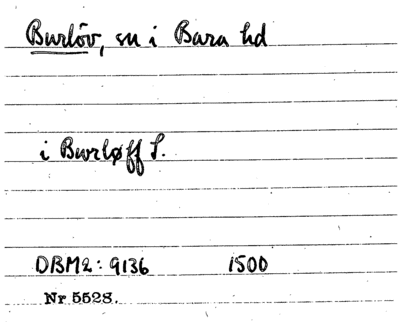 Burlöv, sn i Bara hd
i Burløff S.
DBM2: 9136 1500
Nr 5528.